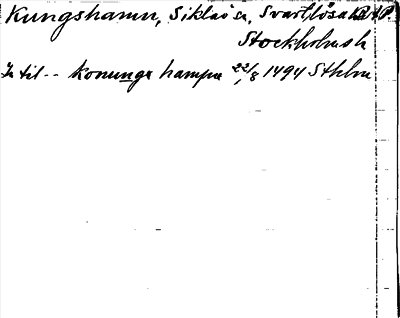 Kungshamn, Siklaö s, Svartlösa hd
Stockholms h
In til -- konunga hampn 22/8 1494 Sthlm